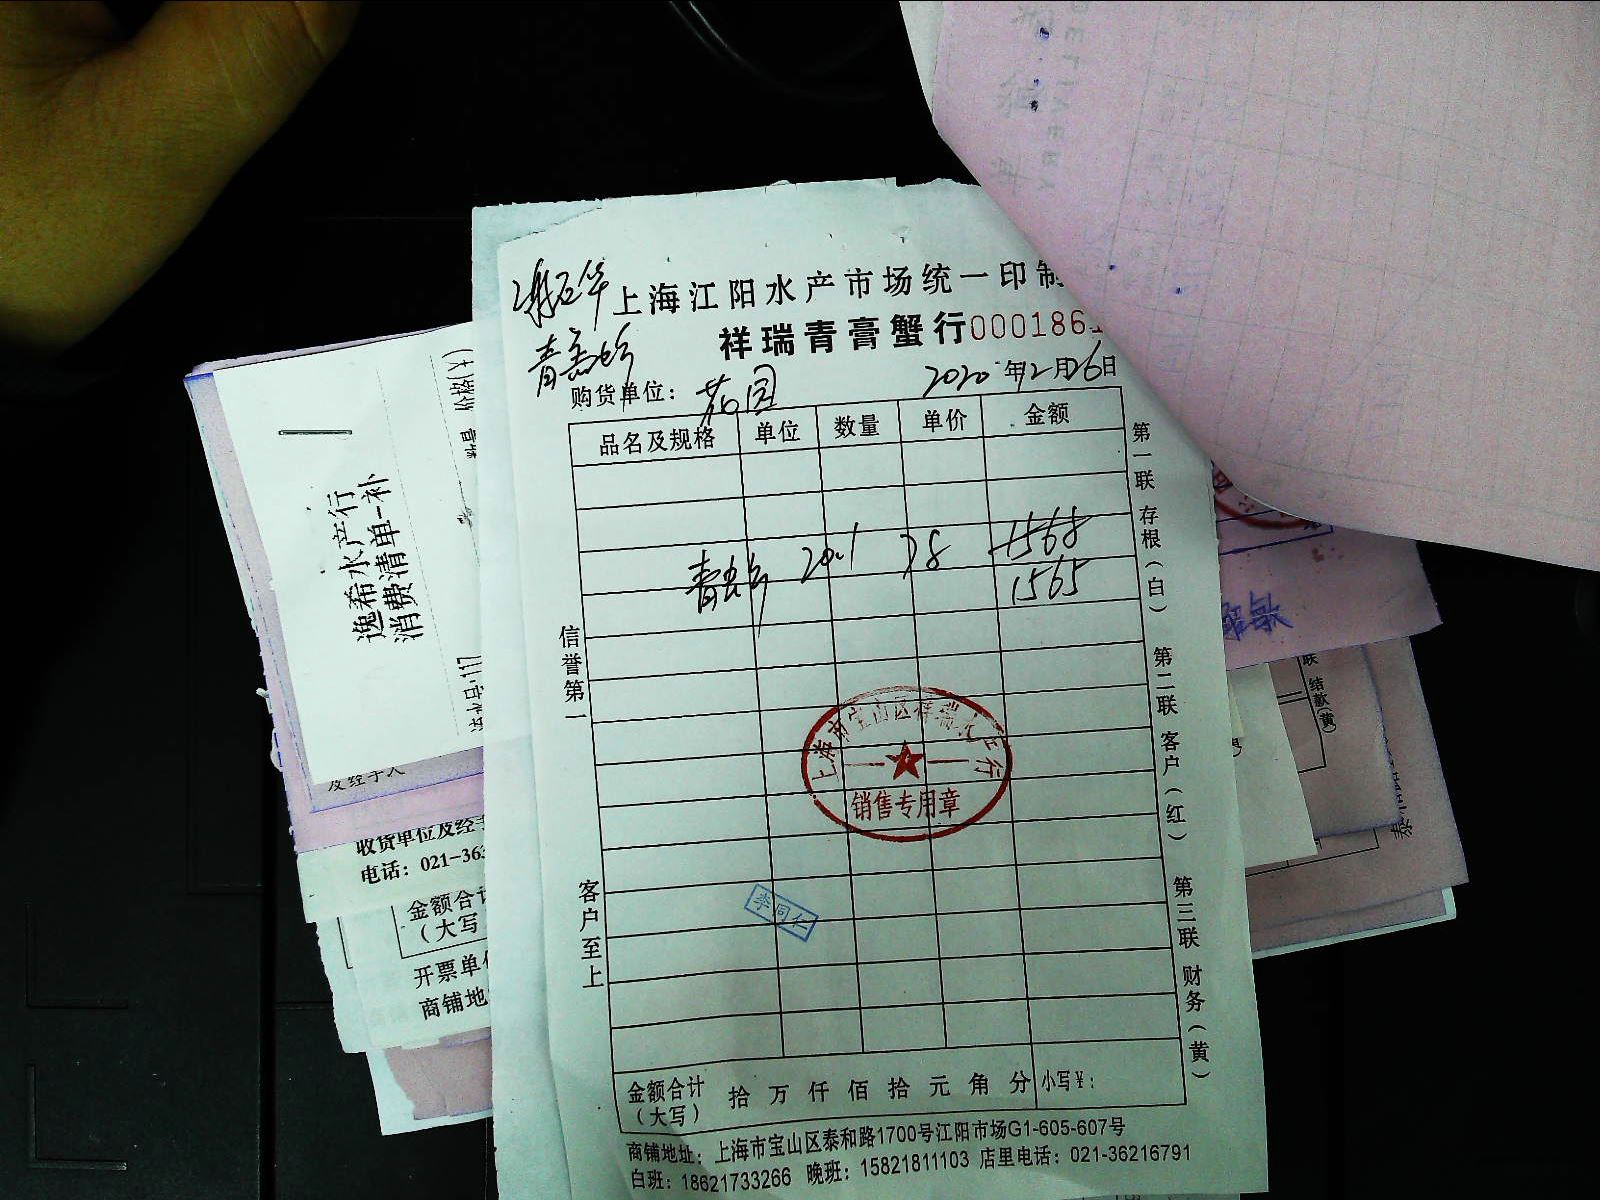 上海江阳水产市场统一印制
祥瑞青膏蟹行 000186
购货单位： 花园
2020 年 12 月 26 日
品名及规格 单位 数量 单价 金额
20.1 78 1568
1565
信誉第一
客户至上
第一联 存根（白）
第二联 客户（红）
第三联 财务（黄）
上海市宝山区祥瑞水产行
销售专用章
李同仁
金额合计（大写） 拾 万 仟 佰 拾 元 角 分 小写￥：
商铺地址：上海市宝山区泰和路1700号江阳市场G1-605-607号
白班：18621733266 晚班：15821811103 店里电话：021-36216791
逸希水产行
消费清单-补
及经手人
收货单位及经手
电话：021-363
金额合计
（大写
开票单位
商铺地
联 结款（黄）